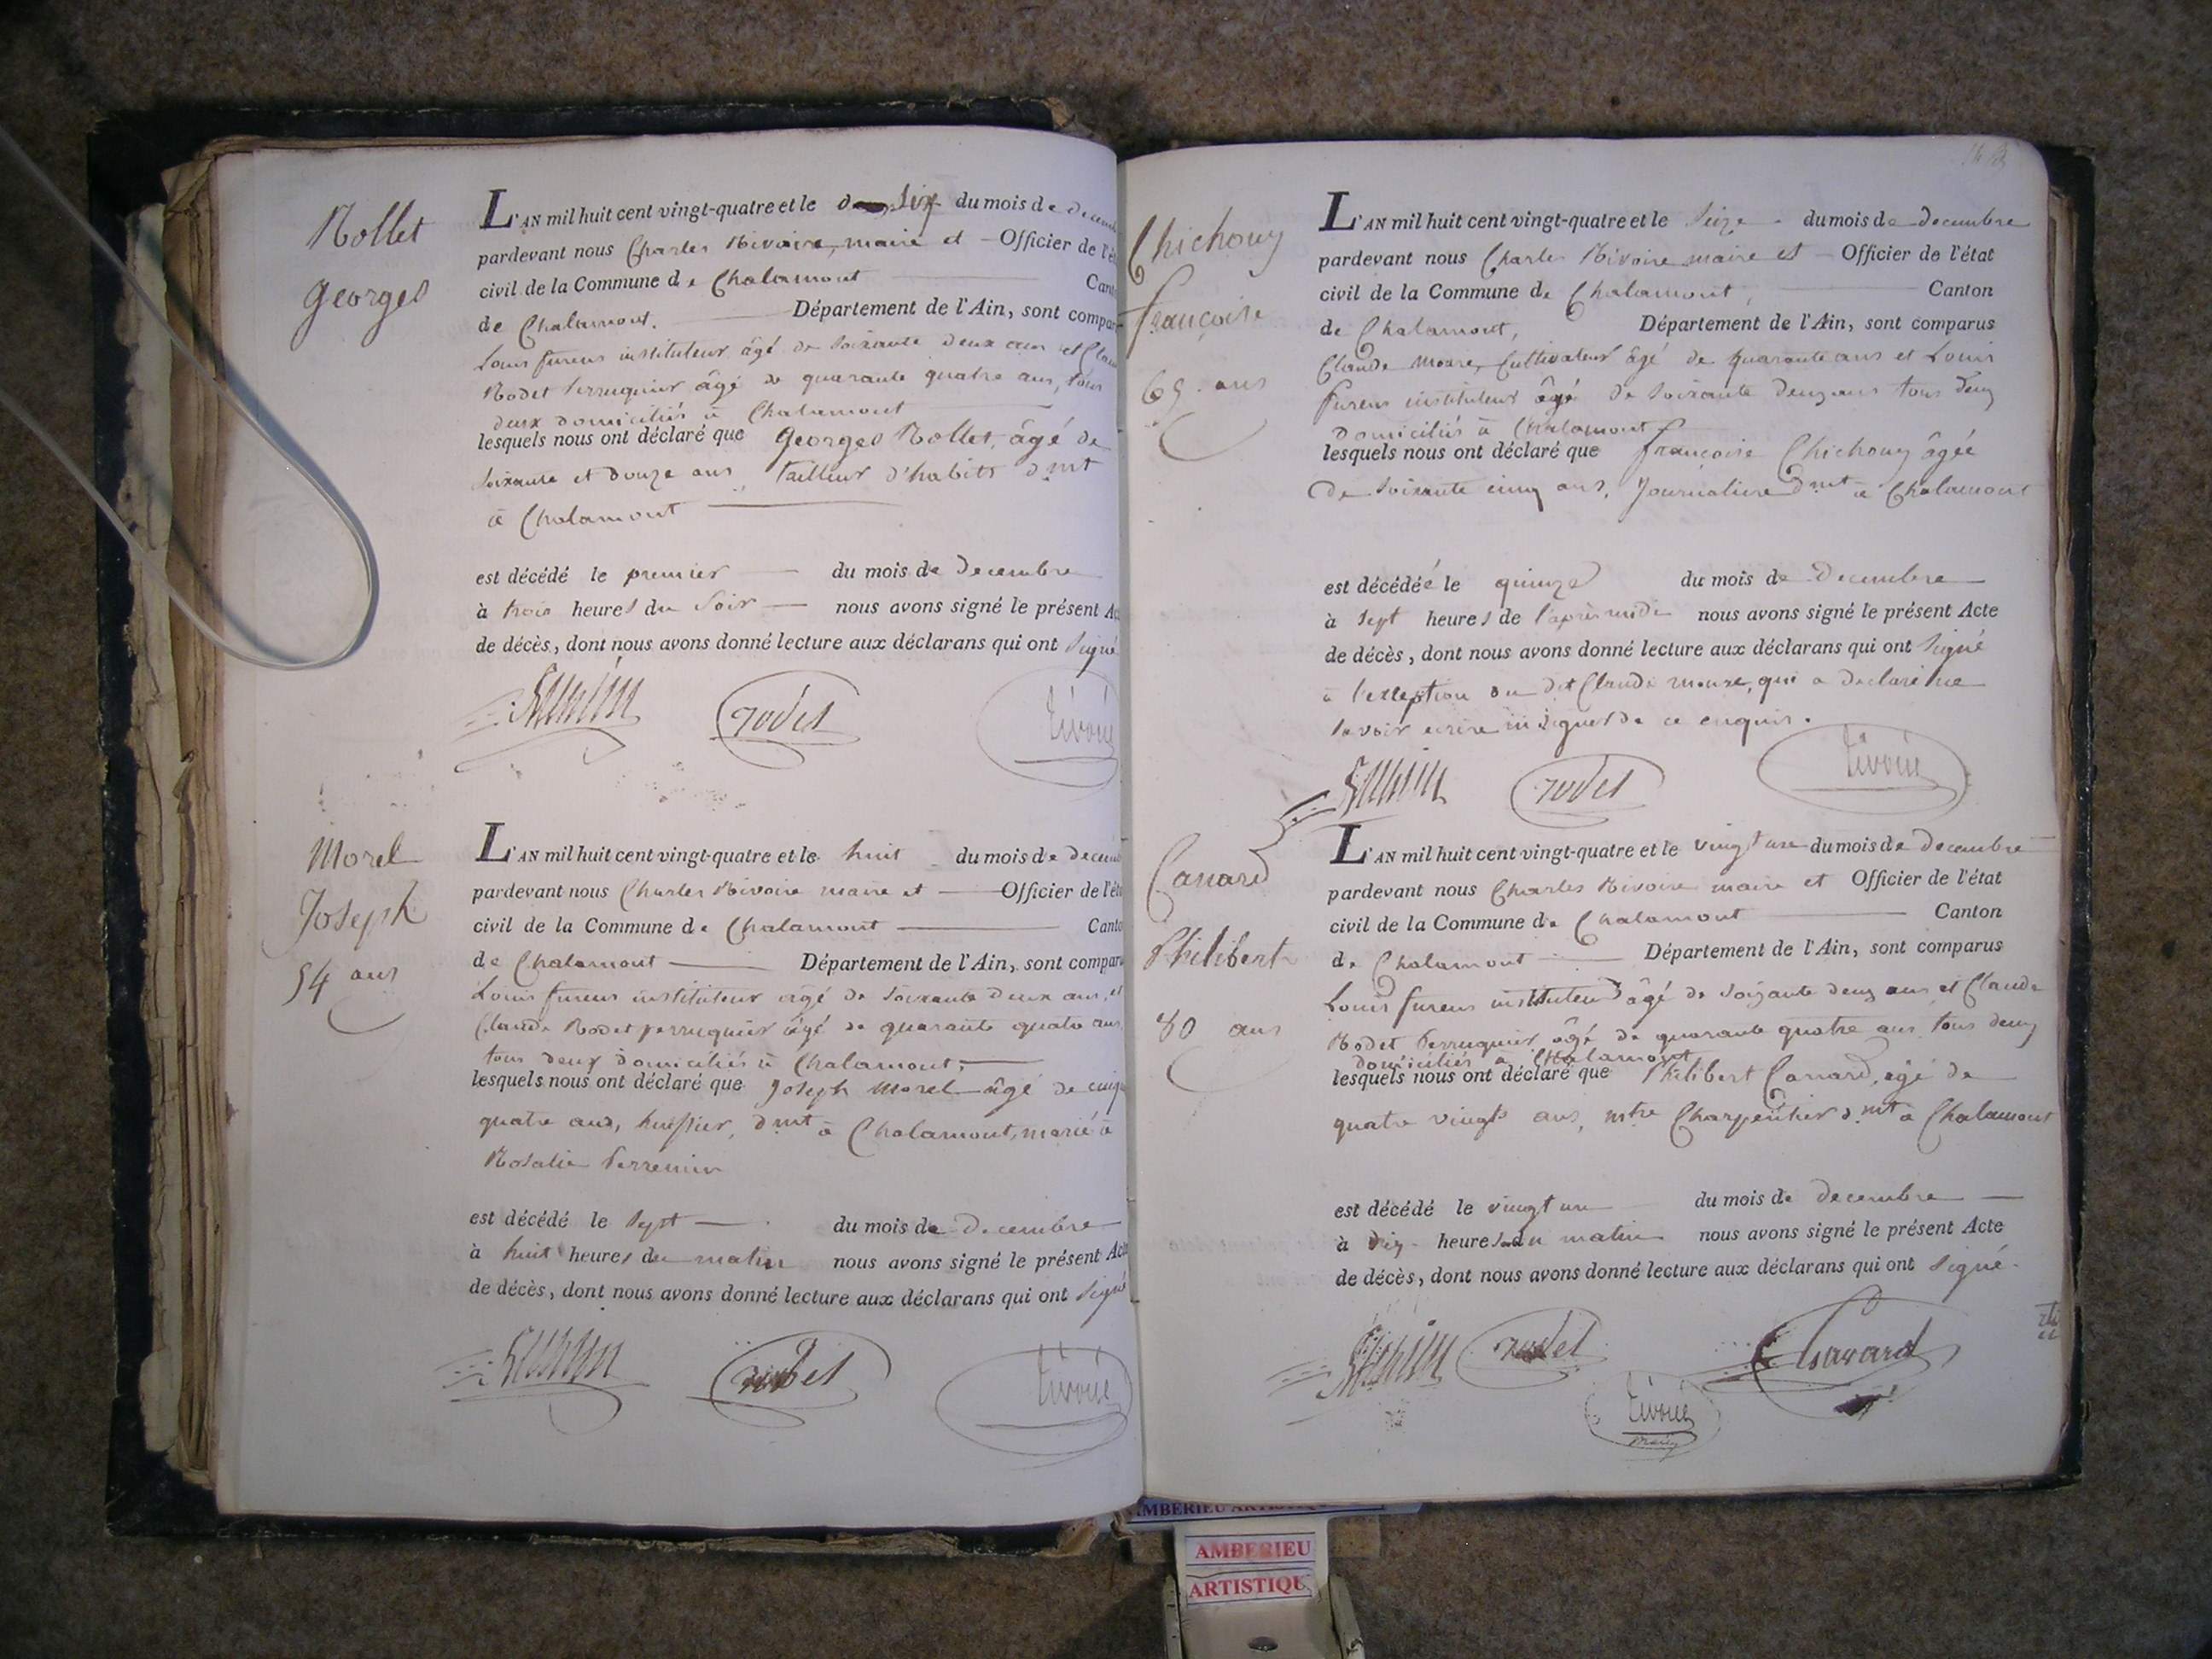 Rollet
Georges
L'AN mil huit cent vingt-quatre et le six du mois de decem
pardevant nous Charles Rivoire, maire et Officier de l'ét
civil de la Commune de Chalamont Cant
de Chalamont. Département de l'Ain, sont compar
Louis furens instituteur âgé de soixante deux ans et Clau
Rodet Perruquier âgé de quarante quatre ans, tous
deux domiciliés à Chalamont
lesquels nous ont déclaré que Georges Rollet, âgé de
soixante et douze ans, tailleur d'habits dmt
à Chalamont
est décédé le premier du mois de Decembre
à trois heures du soir nous avons signé le présent Ac
de décès, dont nous avons donné lecture aux déclarans qui ont signé
rodet
rivoire
Morel
Joseph
54 ans
L'AN mil huit cent vingt-quatre et le huit du mois de decemb
pardevant nous Charles Rivoire maire et Officier de l'éta
civil de la Commune de Chalamont Canto
de Chalamont Département de l'Ain, sont comparu
Louis furens instituteur âgé de soixante deux ans, et
Claude Rodet perruquier âgé de quarante quatre ans
tous deux domiciliés à Chalamont,
lesquels nous ont déclaré que Joseph Morel âgé de cinqu
quatre ans, huissier, dmt à Chalamont, marié à
Rosalie Perremin
est décédé le sept du mois de Decembre
à huit heures du matin nous avons signé le présent Acte
de décès, dont nous avons donné lecture aux déclarans qui ont signé
rodet
rivoire
Chichoux
françoise
65 ans
L'AN mil huit cent vingt-quatre et le seize du mois de decembre
pardevant nous Charles Rivoire maire et Officier de l'état
civil de la Commune de Chalamont, Canton
de Chalamont, Département de l'Ain, sont comparus
Claude Cultivateur âgé de quarante ans et Louis
furens instituteur âgé de soixante deux ans tous deux
domiciliés à Chalamont
lesquels nous ont déclaré que françoise Chichoux âgée
de soixante cinq ans, Journaliere dmt à Chalamont
est décédéé le quinze du mois de Decembre
à sept heures de l'après midi nous avons signé le présent Acte
de décès, dont nous avons donné lecture aux déclarans qui ont signé
à l'exception du dit Claude qui a declaré ne
savoir ecrire ni signer de ce enquis.
rodet
rivoire
Canard
Philibert
80 ans
L'AN mil huit cent vingt-quatre et le vingt un du mois de decembre
pardevant nous Charles Rivoire maire et Officier de l'état
civil de la Commune de Chalamont Canton
de Chalamont Département de l'Ain, sont comparus
Louis furens instituteur âgé de soixante deux ans et Claude
Rodet Perruquier âgé de quarante quatre ans tous deux
domiciliés à Chalamont
lesquels nous ont déclaré que Philibert Canard, âgé de
quatre vingts ans, mtre Charpentier dmt à Chalamont
est décédé le vingt un du mois de decembre
à dix heures du matin nous avons signé le présent Acte
de décès, dont nous avons donné lecture aux déclarans qui ont signé
rodet
rivoire
maire
AMBERIEU
AMBERIEU
ARTISTIQU